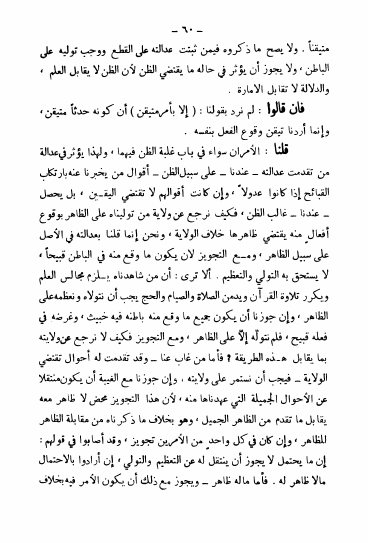 – ٦٠ –
متيقناً . ولا يصح ما ذكروه فيمن ثبتت عدالته على القطع ووجب توليه على
الباطن ، ولا يجوز أن يؤثر في حاله ما يقتضي الظن لأن الظن لا يقابل العلم ،
والدلالة لا تقابل الامارة .
فان قالوا : لم نرد بقولنا : ( إلا بأمر متيقن ) أن كونه حدثاً متيقن ،
وإنما أردنا تيقن وقوع الفعل بنفسه .
قلنا : الأمران سواء في باب غلبة الظن فيهما ، ولهذا يؤثر في عدالة
من تقدمت عدالته – عندنا – على سبيل الظن – أقوال من يخبرنا عنه بارتكاب
القبائح إذا كانوا عدولاً ، وإن كانت أقوالهم لا تقتضي اليقين ، بل يحصل
– عندنا – غالب الظن ، فكيف نرجع عن ولاية من توليناه على الظاهر بوقوع
أفعال منه يقتضي ظاهرها خلاف الولاية ، ونحن إنما قلنا بعدالته في الأصل
على سبيل الظاهر ، ومع التجويز لان يكون ما وقع منه في الباطن قبيحاً ،
لا يستحق به التولي والتعظيم . ألا ترى : أن من شاهدناه يلزم مجالس العلم
ويكرر تلاوة القرآن ويدمن الصلاة والصيام والحج يجب أن نتولاه ونعظمه على
الظاهر ، وإن جوزنا أن يكون جميع ما وقع منه باطنه فيه خبيث ، وغرضه في
فعله قبيح ، فلم نتولّه إلا على الظاهر ، ومع التجويز فكيف لا نرجع عن ولايته
بما يقابل هذه الطريقة ؟ فأما من غاب عنا – وقد تقدمت له أحوال تقتضي
الولاية – فيجب أن نستمر على ولايته . وإن جوزنا مع الغيبة أن يكون منتقلا
عن الأحوال الجميلة التي عهدناها منه ، لأن هذا التجويز محض لا ظاهر معه
يقابل ما تقدم من الظاهر الجميل ، وهو بخلاف ما ذكرناه من مقابلة الظاهر
للظاهر ، وإن كان في كل واحد من الأمرين تجويز ، وقد أصابوا في قولهم :
إن ما يحتمل لا يجوز أن ينتقل له عن التعظيم والتولي ، إن أرادوا بالاحتمال
مالا ظاهر له . فأما ماله ظاهر – ويجوز مع ذلك أن يكون الأمر فيه بخلاف